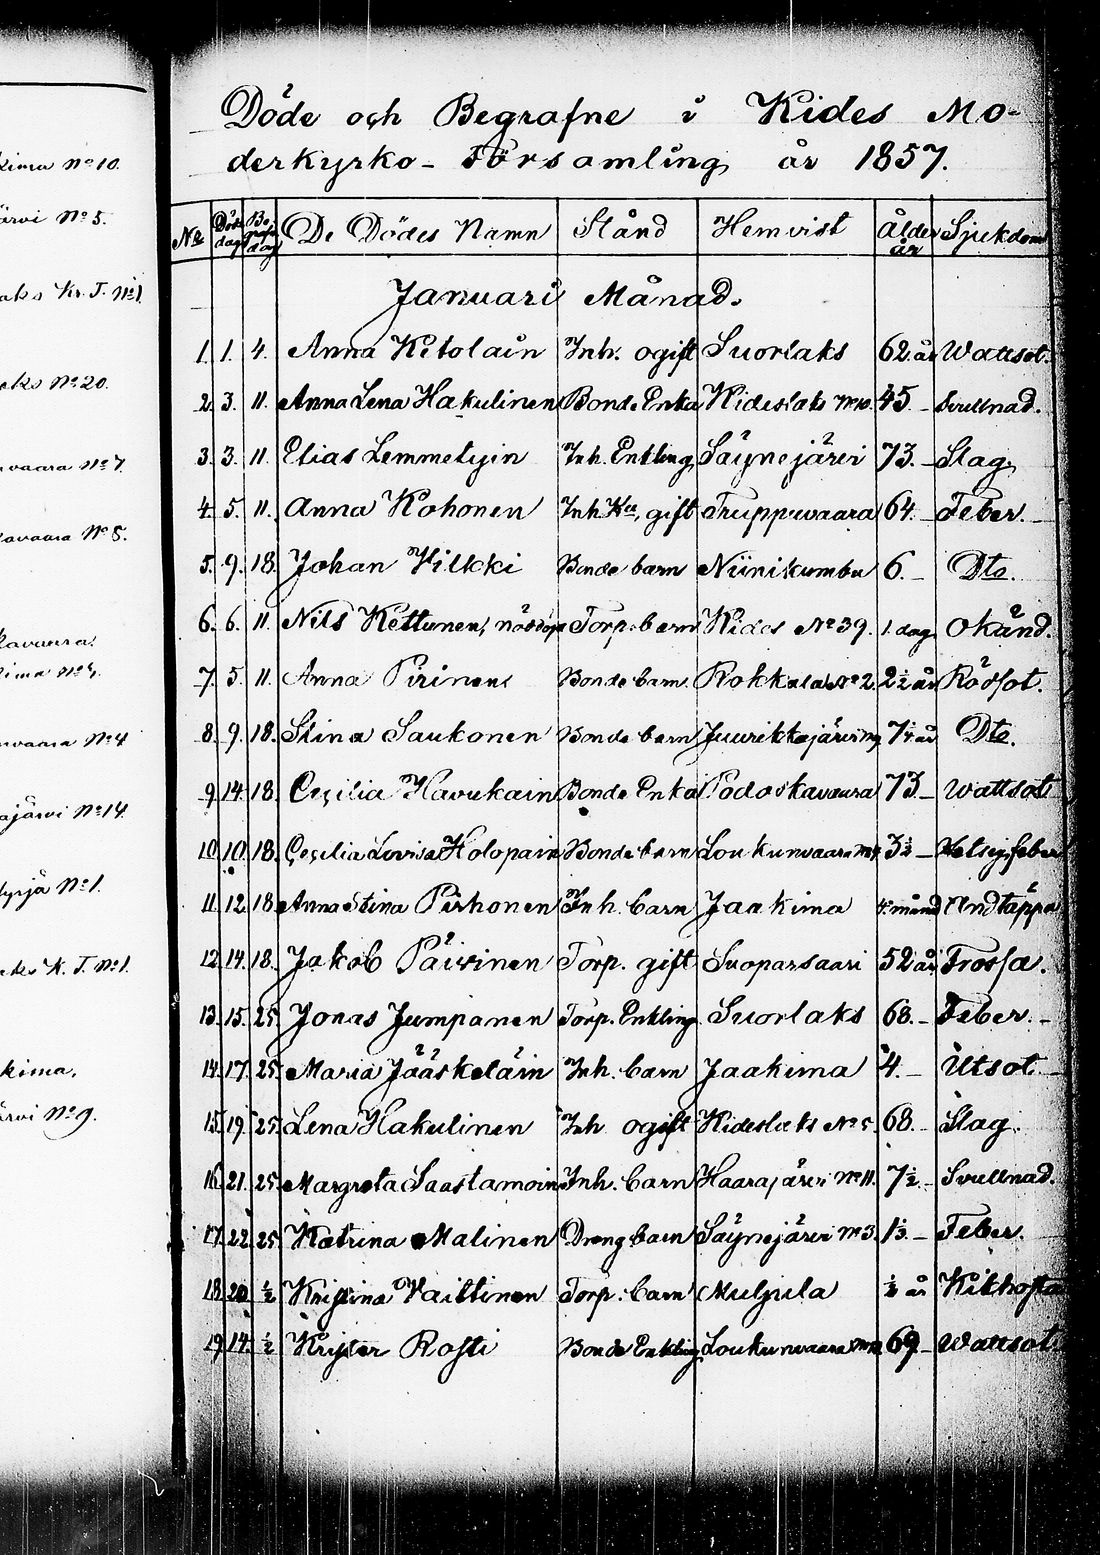 kima No 10.
ärvi No 5.
aks Kr. T. No 1
aks No 20.
vaara No 7.
avaara No 5.
kavaara.
kima No
vaara No 4
ajärvi No 14.
yrjä No 1.
aks K. T. No 1.
kima,
ärvi No 9.
Döde och Begrafne i Kides Mo-
derkyrko-Församling år 1857.
No Döds dag Begrafn dag De Dödes Namn Stånd Hemvist Ålder år Sjukdom
Januari Månad.
1. 1. 4. Anna Ketolain Inh. ogift Suorlaks 62 år Wattsot.
2. 3. 11. Anna Lena Hakulinen Bonde Enka Kideslaks No 10. 45. Svullnad.
3. 3. 11. Elias Lemmetyin Inh. Enkling Säynejärvi 73. Slag
4. 5. 11. Anna Kohonen Inh. Ka, gift Truppuvaara 64. Feber.
5. 9. 18. Johan Vilkki Bonde barn Niinikumbu 6. Dto.
6. 6. 11. Nils Kettunen, nöddöpt Torp. barn Kides No 39. 1. dag Okänd.
7. 5. 11. Anna Pirinen Bonde barn Rokkalaks No 2. 2½ år Rödsot.
8. 9. 18. Stina Saukonen Bonde barn Juurikkajärvi 7½ år Dto.
9. 14. 18. Cecilia Havukain Bonde Enka Podoskavaara 73 Wattsot
10. 10. 18. Cecilia Lovisa Holopain Bonde barn Loukunvaara 3½ Hetsig feber
11. 12. 18. Anna Stina Pirhonen Inh. barn Jaakima 4 månd Andtäppa
12. 14. 18. Jakob Päivinen Torp. gift Suoparsaari 52 år Frossa.
13. 15. 25. Jonas Jumpanen Torp. Enkling Suorlaks 68. Feber.
14. 17. 25. Maria Jääskeläin Inh. barn Jaakima 4. Utsot.
15. 19. 25. Lena Hakulinen Inh ogift Kideslaks No 5. 68. Slag.
16. 21. 25. Margreta Saastamoin Inh. barn Haarajärvi No 11. 7½ Svullnad.
17. 22. 25. Katrina Malinen Dreng barn Säynejärvi No 3. 1½ Feber.
18. 20. ½ Kristina Vaittinen Torp. barn Muljula ½ år Kikhosta
19. 14. ½ Krister Rosti Bonde Enkling Loukunvaara 69 Wattsot